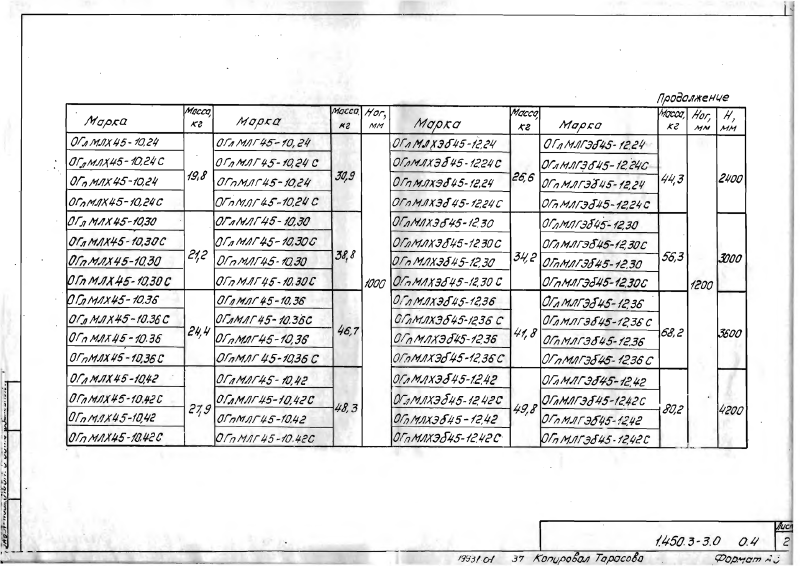 Продолжение
Марка Масса, кг Марка Масса, кг Ног, мм Марка Масса, кг Марка Масса, кг Ног, мм Н, мм
ОГл МЛХ45-10,24 19,8 ОГл МЛГ45-10,24 30,9 1000 ОГл МЛХЭб45-12.24 26,6 ОГл МЛГЭб45-12.24 44,3 1200 2400
ОГл МЛХ45-10.24 С ОГл МЛГ45-10,24 С ОГл МЛХЭб45-1224С ОГл МЛГЭб45-12.24С
ОГп МЛХ45-10,24 ОГп МЛГ45-10,24 ОГп МЛХЭб45-12,24 ОГп МЛГЭб45-12,24
ОГп МЛХ45-10,24С ОГп МЛГ45-10,24 С ОГп МЛХЭб45-12,24С ОГп МЛГЭб45-12,24С
ОГл МЛХ45-10,30 21,2 ОГл МЛГ45-10,30 38,8 ОГл МЛХЭб45-12.30 34,2 ОГл МЛГЭб45-12,30 56,3 3000
ОГл МЛХ45-10,30С ОГл МЛГ45-10,30С ОГл МЛХЭб45-12,30С ОГл МЛГЭб45-12,30С
ОГп МЛХ45-10,30 ОГп МЛГ45-10,30 ОГп МЛХЭб45-12,30 ОГп МЛГЭб45-12.30
ОГп МЛХ45-10.30С ОГп МЛГ45-10.30С ОГп МЛХЭб45-12,30 С ОГп МЛГЭб45-12.30С
ОГл МЛХ45-10.36 24,4 ОГл МЛГ45-10.36 46,7 ОГл МЛХЭб45-12,36 41,8 ОГл МЛГЭб45-12,36 68,2 3600
ОГл МЛХ45-10.36С ОГл МЛГ45-10.36С ОГл МЛХЭб45-1236 С ОГл МЛГЭб45-12,36 С
ОГп МЛХ45-10.36 ОГп МЛГ45-10,36 ОГп МЛХЭб45-12.36 ОГп МЛГЭб45-12.36
ОГп МЛХ45-10,36С ОГп МЛГ45-10,36 С ОГп МЛХЭб45-12,36 С ОГп МЛГЭб45-12.36 С
ОГл МЛХ45-10,42 27,9 ОГл МЛГ45-10,42 48,3 ОГл МЛХЭб45-12,42 49,8 ОГл МЛГЭб45-12,42 80,2 4200
ОГл МЛХ45-10.42С ОГл МЛГ45-10,42С ОГл МЛХЭб45-12,42С ОГл МЛГЭб45-1242С
ОГп МЛХ45-10,42 ОГп МЛГ45-10.42 ОГп МЛХЭб45-12,42 ОГп МЛГЭб45-12,42
ОГп МЛХ45-10.42С ОГп МЛГ45-10.42С ОГп МЛХЭб45-12,42С ОГп МЛГЭб45-12.42С
1.450.3-3.0 0.4
Лист
2
37 Копировал Тарасова Формат